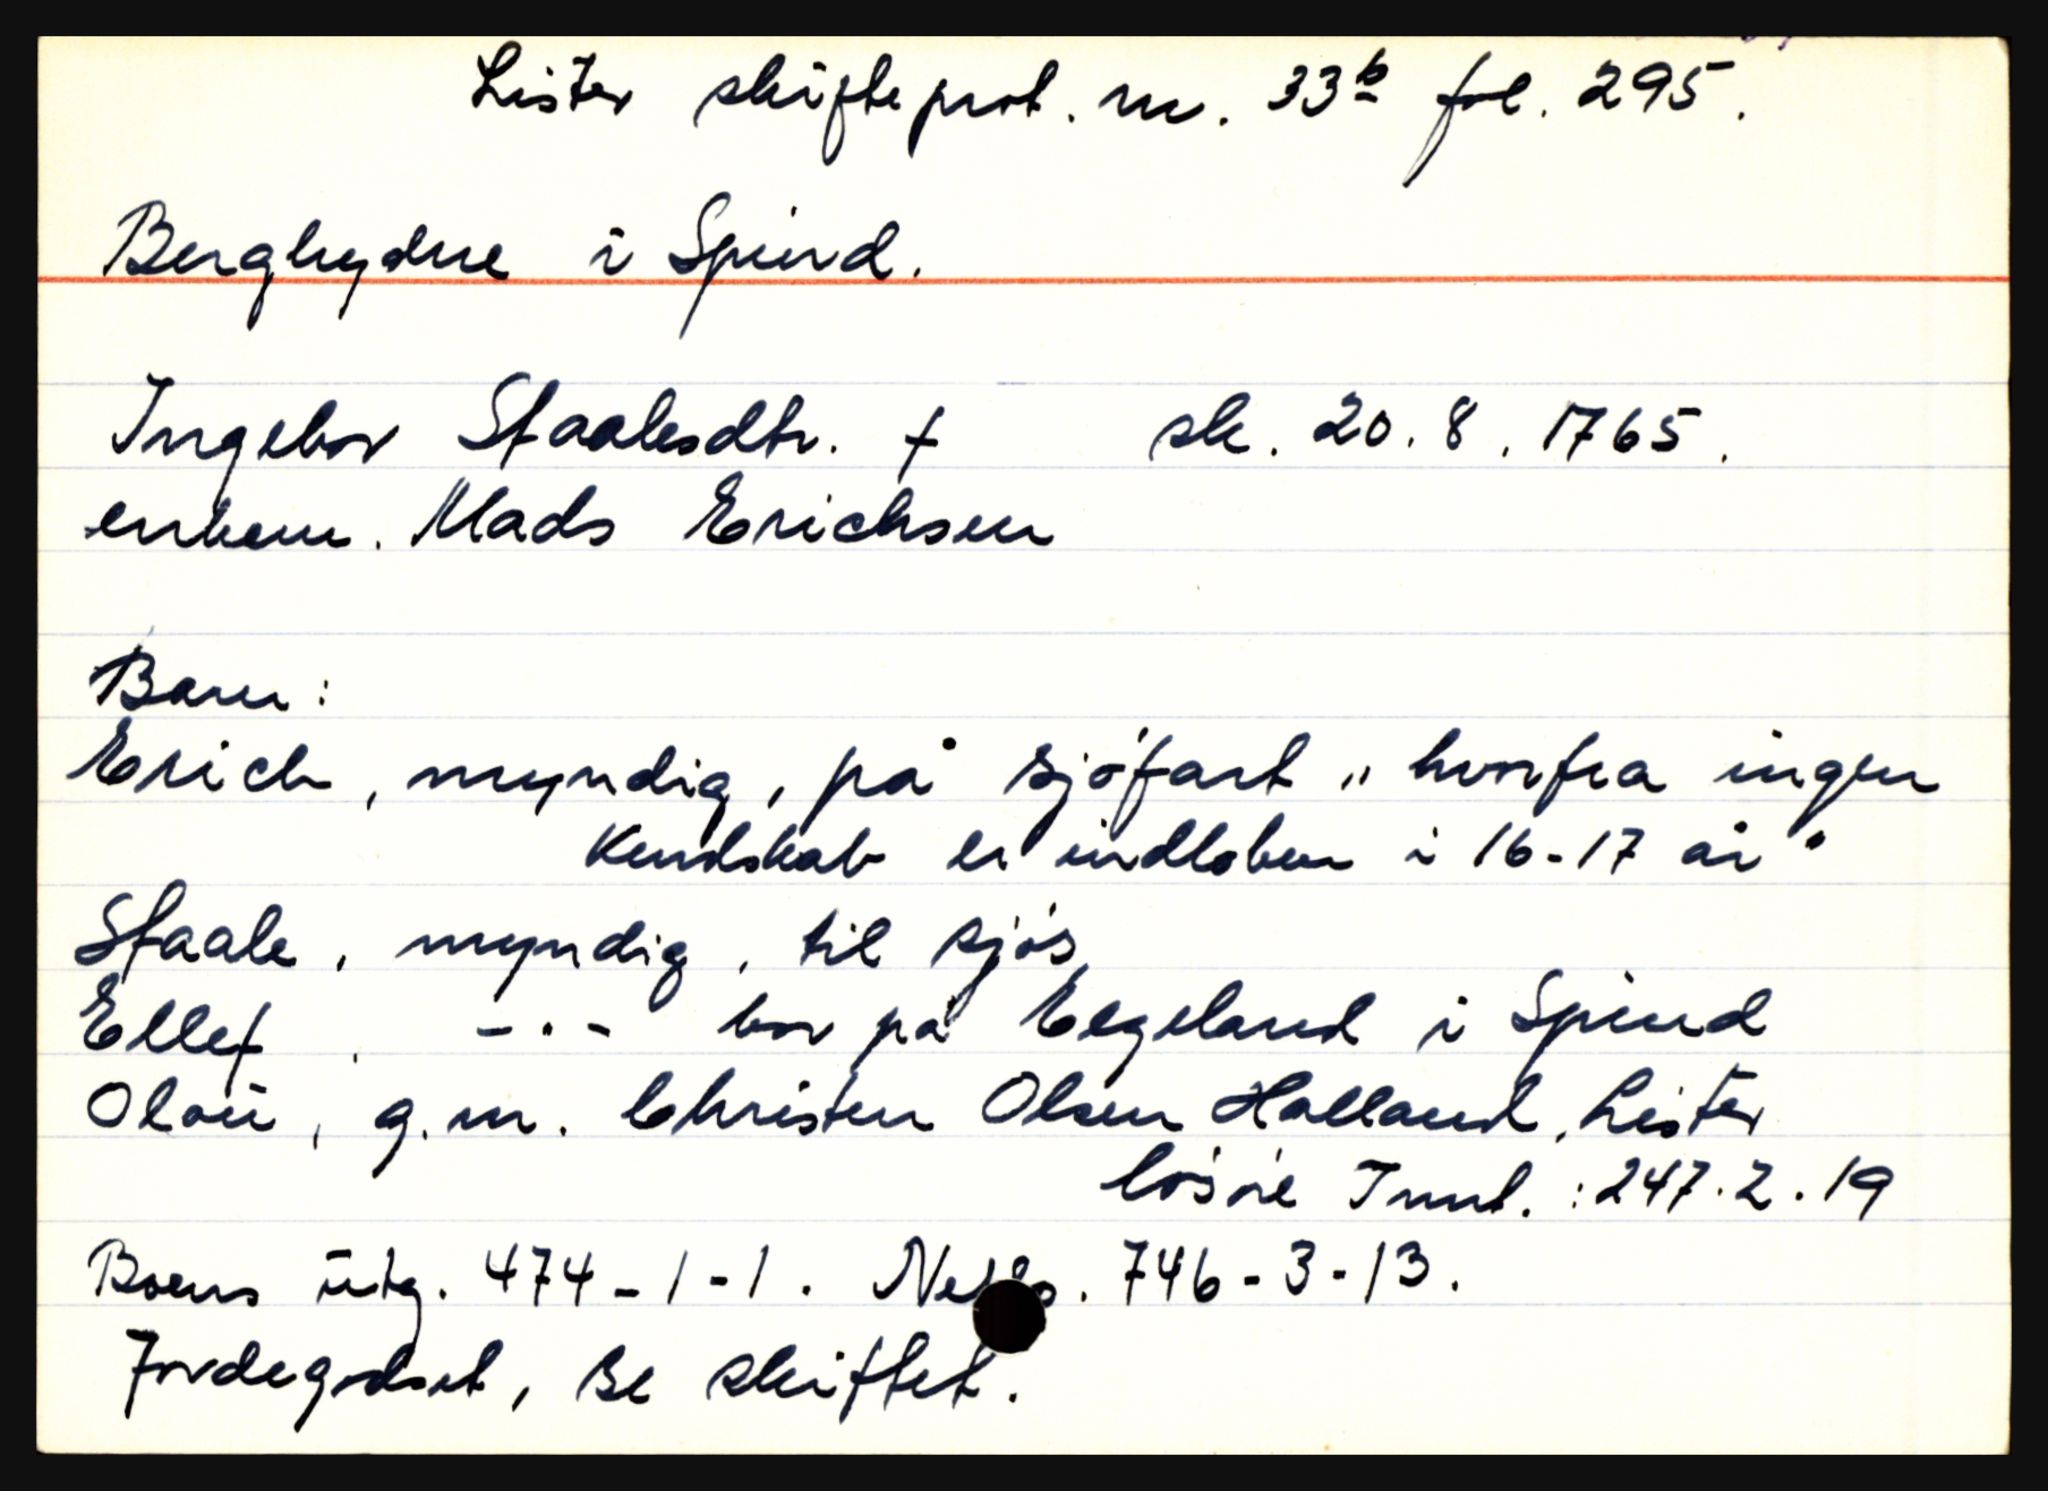 Lister skifteprot. nr. 33b fol. 295.
Berghydne i Spind.
Ingebor Staalesdtr. † sk. 20.8.1765.
enkem. Mads Erichsen
Barn:
Erich, myndig, på sjöfart „hvorfra ingen
Kendskab er indloben i 16-17 år"
Staale, myndig, til sjös
Ellef, -.- bor på Elgeland i Spind
Olou, g.m. Christen Olsen Halland, Lister
lösöre Innt.: 247.2.19
Boens utg. 474-1-1. Netto. 746-3-13.
Jordegodset, se skiftet.